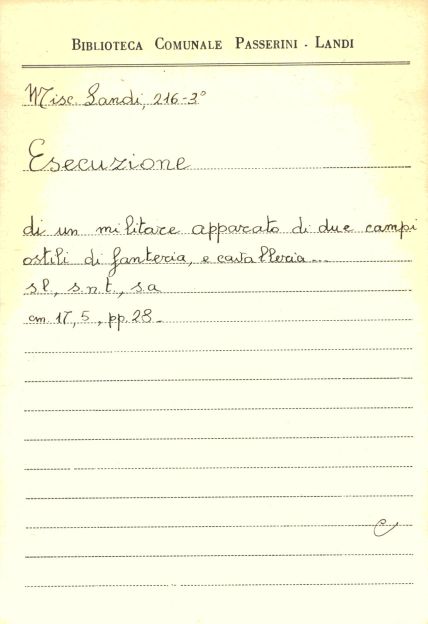 BIBLIOTECA COMUNALE PASSERINI - LANDI
Misc. Landi, 216-3°
Esecuzione
di un militare apparato di due campi
ostili di fanteria, e cavalleria...
s.l., s.n.t., s.a
cm. 17,5, pp. 28.
C